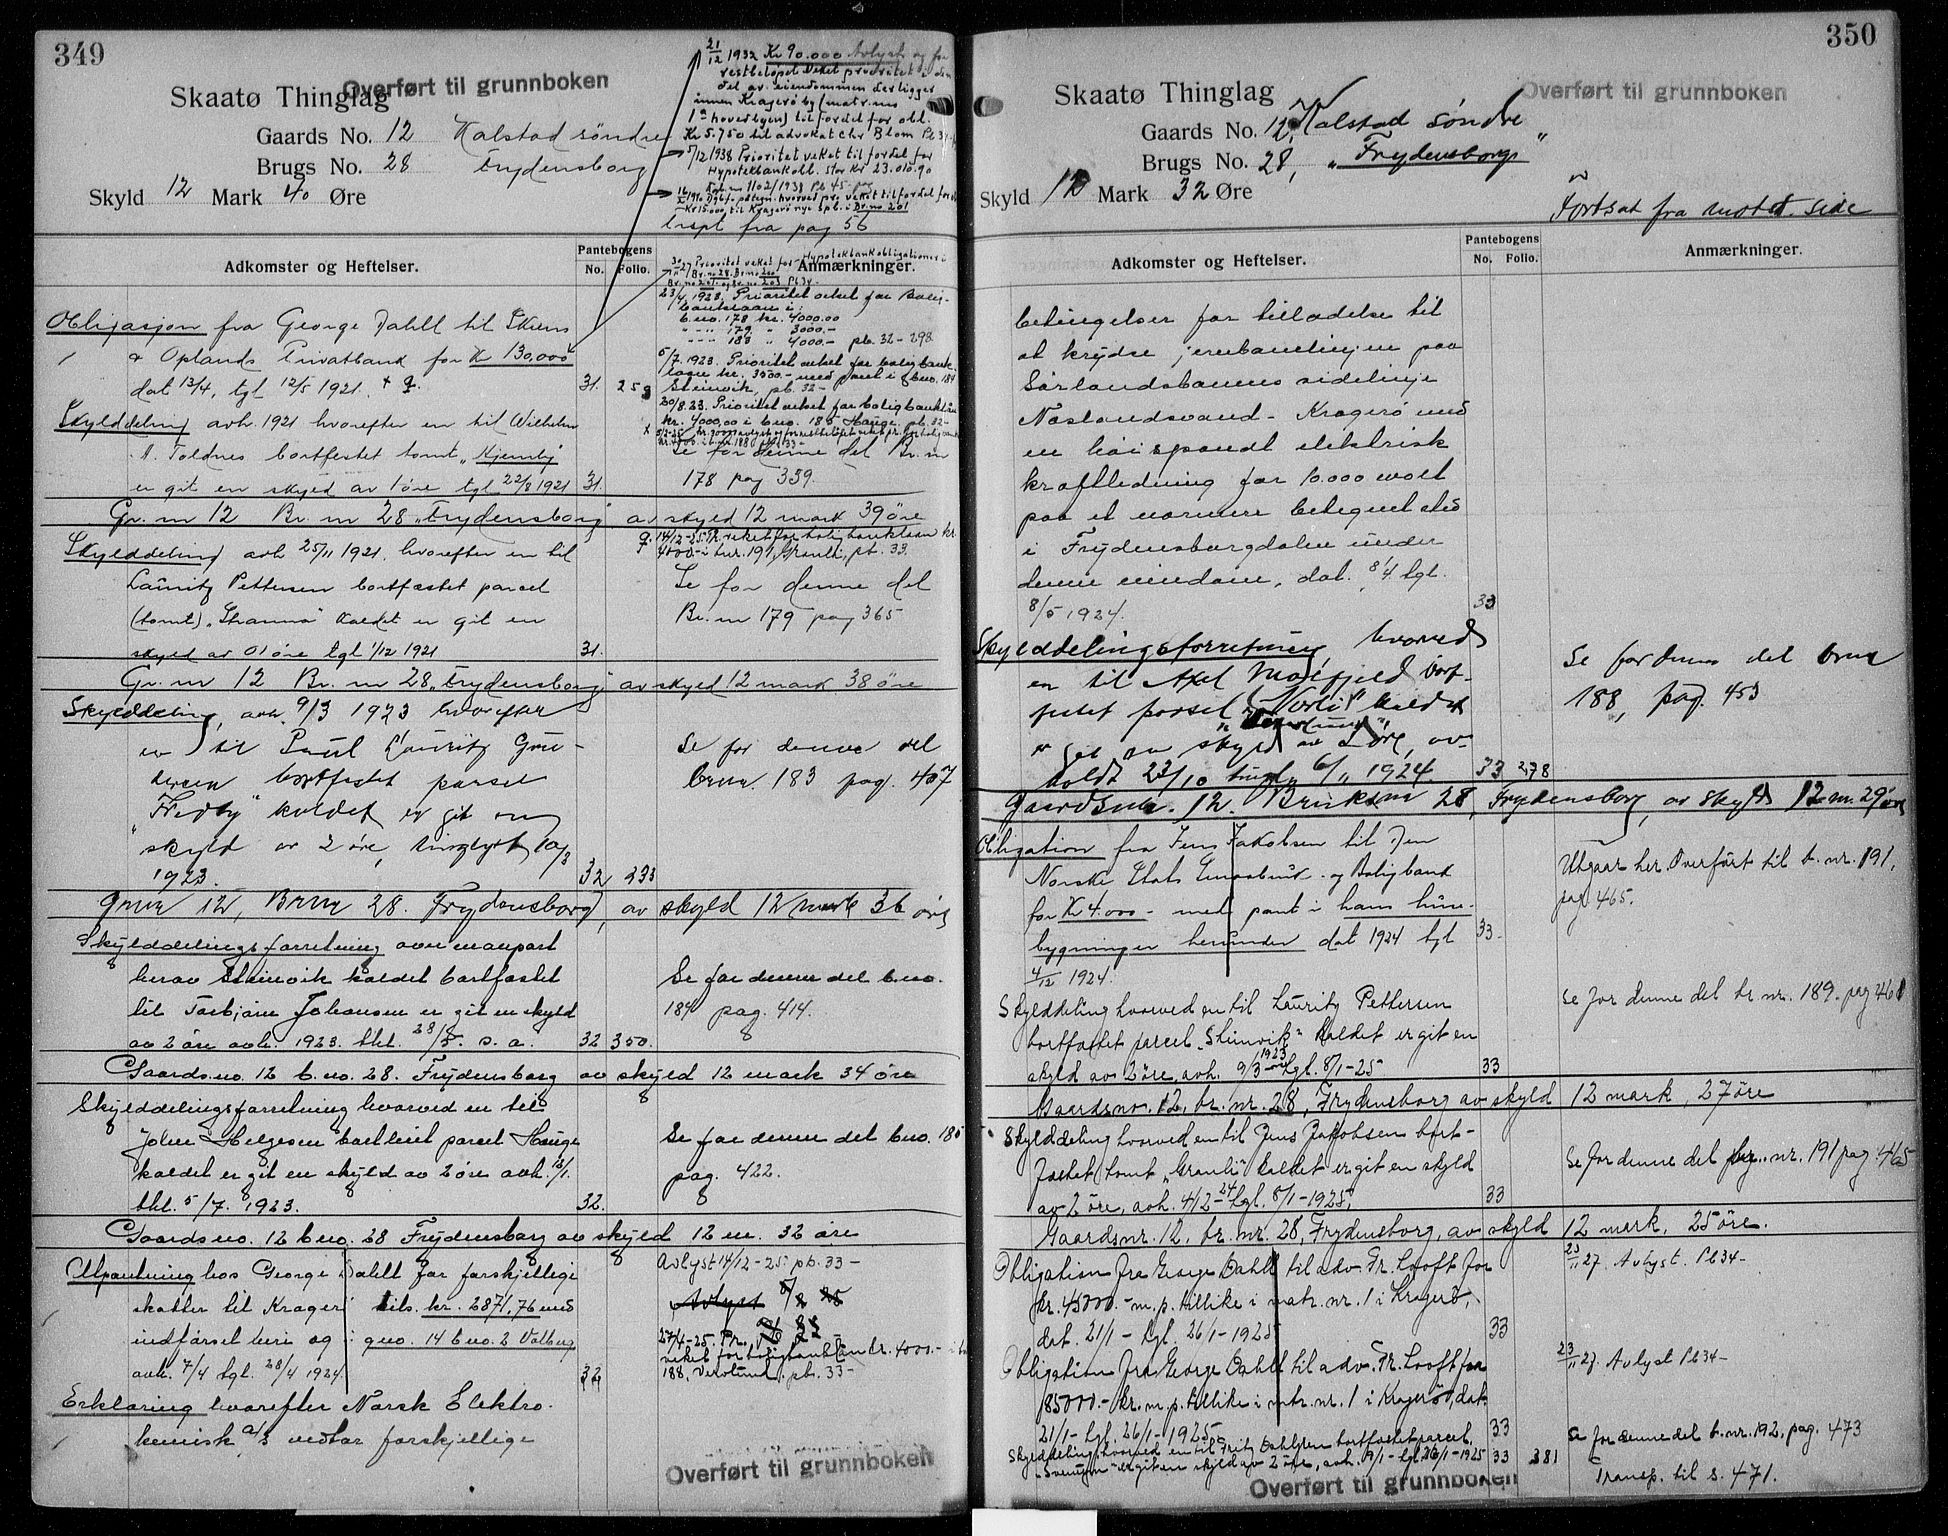 349
Overført til grunnboken
Skaatø Thinglag
Gaards No. 12 Kalstad søndre
Brugs No. 28 Frydensborg
Skyld 12 Mark 40 Øre
21/12 1932 Kr 90.000 Avlyst og for
restbeløpet veket prioritet i den
del av eiendommen der ligger
innen Kragerø by (matr. nr.
1 a hovedbygn) til fordel for obl.
Kr 5.750 til advokat Chr Blom Pb 37
5/12 1938 Prioritet veket til fordel for
Hypotekbankobl. stor Kr 23.010.90
Kr 15.000 til Kragerø nye spb. i Br. no 201
Transpt fra pag 56
Adkomster og Heftelser.
Pantebogens
No. Folio.
Anmærkninger.
Prioritet veket for Hypotekbankobligationer i
Br. no 28. Br. no 200
Br. no 201 og Br. no 203 Pb 34-
23/4 1923. Prioritet veket for Bolig-
banklaan i
b. no. 178 kr. 4000.00
" - " 179 " 3000.-
" - " 183 " 4000.- pb. 32 - 298
5/7. 1923. Prioritet veket for boligbank-
laan kr. 3500.- med pant i b. no. 184
Steinvik, pb. 32 -
20/8.23. Prioritet veket for boligbanklån
kr. 4000,00 i b. no. 185 Hauge. pb. 32-
Obligasjon fra George Dahll til Skiens
& Oplands Privatbank for Kr 130,000
dat 13/4, tgl 12/5 1921. 31. 253
Skylddeling avh. 1921 hvorefter en til Wilhelm
A. Toldnes bortfestet tomt "Kjemby"
er git en skyld av 1 øre tgl 22/8 1921 31.
Se for denne del Br. nr
178 pag 359.
Gr. nr 12 Br. nr 28 "Frydensborg" av skyld 12 mark 39 øre
Skylddeling avh 25/11 1921. hvorefter en til
Lauritz Pettersen bortfæstet parcel
(tomt) "Strannø" kaldet er git en
skyld av 01 øre tgl 1/12 1921 31.
14/12-25 Pr. veket for boligbanklaan kr.
4000 - i b.nr. 191, Granli, pb. 33.
Se for denne del
Br. nr 179 pag 365
Gr. nr 12 Br. nr 28 "Frydensborg" av skyld 12 mark 38 øre
Skylddeling, avh. 9/3 1923 hvorefter
en til Paul Lauritz Gun-
dersen bortfestet parsel
"Fredly" kaldet er git en
skyld av 2 øre, tinglyst 10/3
1923. 32 233
Se for denne del
brnr. 183 pag. 407
Gnr 12, Brnr 28. Frydensborg, av skyld 12 mark 36 øre
Skylddelingsforretning over en part
herav Steinvik kaldet bortfæstet
til Torbjørn Johansen er git en skyld
av 2 øre avh. 1923. thl. 28/5. s. a. 32 350.
Se for denne del b. no.
184 pag. 414.
Gaards no. 12 b. no. 28. Frydensborg av skyld 12 mark 34 øre
Skylddelingsforretning hvorved en til
John Helgesen bortleiet parsel Hauge
kaldet er git en skyld av 2 øre avh. 13/1.
thl. 5/7. 1923. 32.
Se for denne del b. no. 185
pag. 422.
Gaards no. 12 b. no. 28 Frydensborg av skyld 12 m. 32 øre
Utpantning hos George Dahll for forskjellige
skatter til Kragerø tils. kr. 2871,76 med
indførsel heri og i g. no. 14 b. no. 2 Valberg
avh. 7/4 tgl. 28/4 1924. 32
Avlyst 14/12 - 25 pb. 33 -
Avlyst
veket for boligbanklån kr. 4000.-
188, Vekstlund, pb. 33 -
Erklæring hvorefter Norsk Elektro-
kemisk A/S vedtar forskjellige
Overført til grunnboken
350
Overført til grunnboken
Skaatø Thinglag
Gaards No. 12, Kalstad søndre
Brugs No. 28, "Frydensborg"
Skyld 12 Mark 32 Øre
Fortsat fra motst. side
Adkomster og Heftelser.
Pantebogens
No. Folio.
Anmærkninger.
betingelser for tilladelse til
at krydse jernbanelinjen paa
Sørlandsbanens sidelinje
Neslandsvand - Kragerø med
en høispændt elektrisk
kraftledning for 10.000 volt
paa et nærmere betegnet sted
i Frydensborgdalen under
denne eiendom, dat. 8/4 tgl.
8/5 1924. 33
Skylddelingsforretning hvorved
en til Axel Moefjeld bort-
festet parsel "Norli" kaldet
er git en skyld av 3 øre, av-
holdt 23/10 tingl. 6/11 1924 33 278
Se for denne del brnr
188, pag. 453
Gaardsnr. 12. Bruksnr 28, Frydensborg, av skyld 12 m. 29 øre
Obligation fra Jens Jakobsen til Den
Norske Stats Smaabruk- og Boligbank
for Kr 4.000 - med pant i hans huse-
bygninger herunder dat 1924 tgl 33.
4/12 1924.
Utgaar her. Overført til b. nr. 191,
pag. 465.
Skylddeling hvorved en til Lauritz Pettersen
bortfæstet parcel "Steinvik" kaldet er git en
skyld av 2 øre, avh. 9/3 1923 tgl. 8/1-25 33
Se for denne del br. nr. 189. pag 461
Gaardsno. 12, br. nr. 28, Frydensborg av skyld 12 mark, 27 øre
Skylddeling hvorved en til Jens Jakobsen bort-
fæstet tomt "Granli" kaldet er git en skyld
av 2 øre, avh. 4/12-24 tgl. 8/1-1925. 33
Se for denne del br. nr. 191 pag. 465
Gaardsnr. 12, br. nr. 28, Frydensborg, av skyld 12 mark, 25 øre.
Obligation fra George Dahll til adv. Fr. Looft for
kr. 45000.- m. p. tillike i matr. nr. 1 i Kragerø,
dat. 21/1 - tgl. 26/1-1925 33
23/11 27. Avlyst. Pb 34-
Obligation fra George Dahll til adv. Fr. Looft for
85000.- kr. m. p. tillike i mtr. nr. 1 i Kragerø, dat.
21/1 - tgl. 26/1-1925. 33
23/11 27. Avlyst Pb 34-
Skylddeling hvorved en til Fritz Dahlgren bortfæstet parcel,
er git en skyld av 2 øre, avh. 9/1 - tgl. 26/1-1925 33 381
Se for denne del b. nr. 192, pag. 473
Transp. til s. 471.
Overført til grunnboken